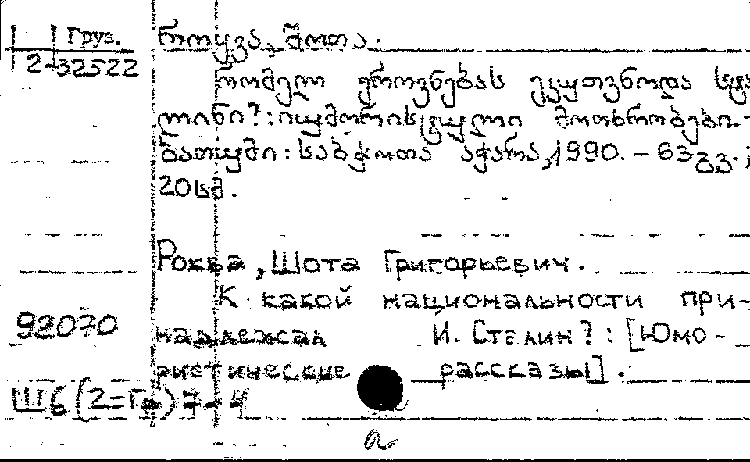 Груз.
2-32522
როყვა, შოთა.
რომელ ეროვნებას ეკუთვნოდა სტა
ლინი?: იუმორისტული მოთხრობები.-
ბათუმი: საბჭოთა აჭარა, 1990. – 63 გვ.;
20 სმ.
Роква, Шота Григорьевич.
К какой национальности при-
92070
надлежал И. Сталин?: [Юмо-
ристические рассказы].
Ш6(2=Гр)7-4
а